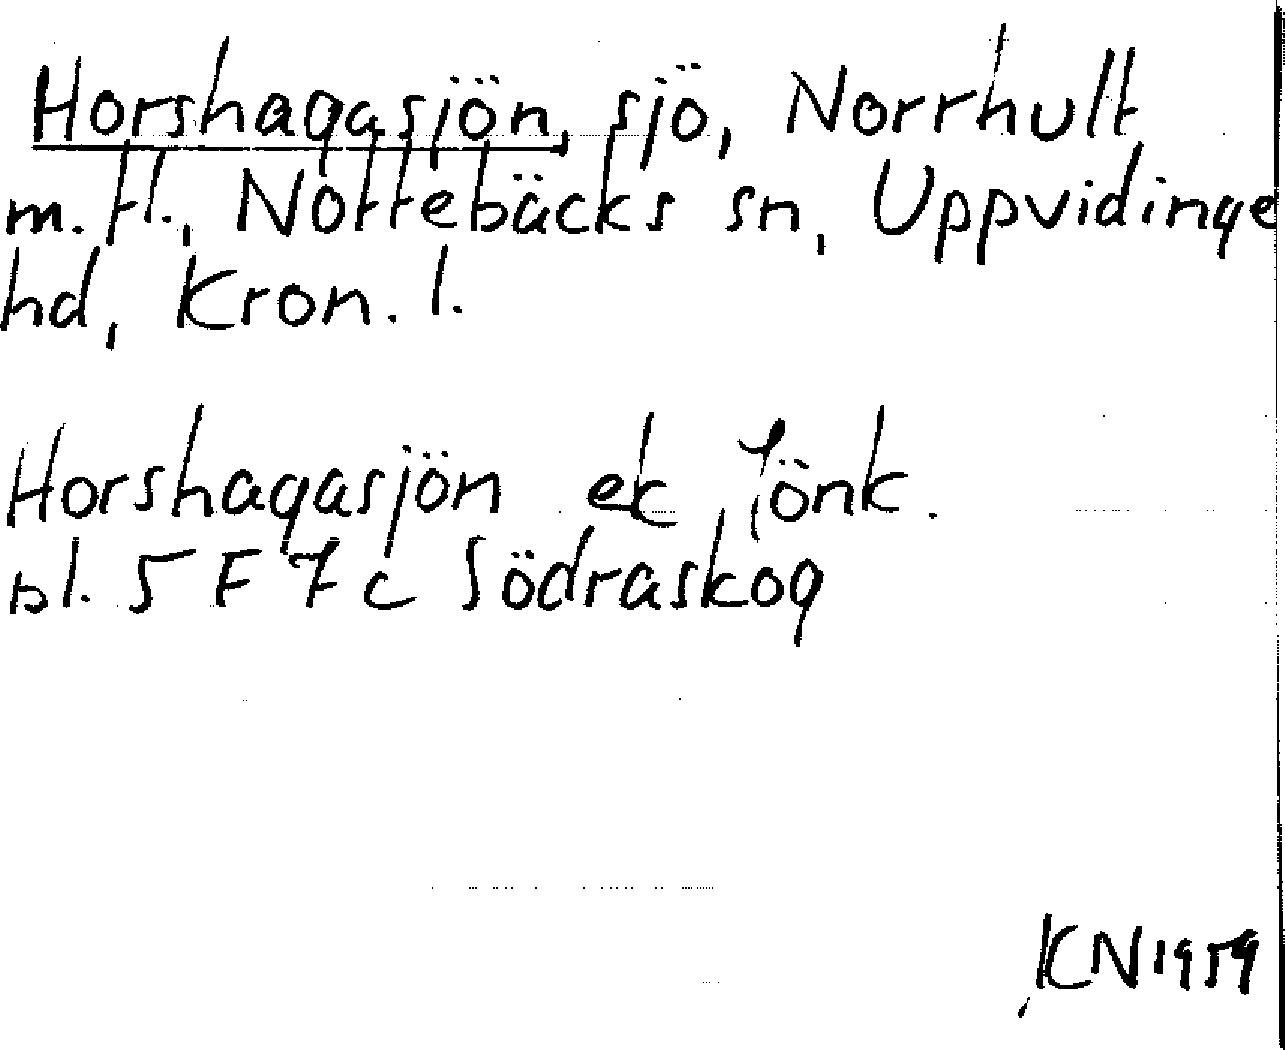 Horshagasjön, sjö, Norrhult
m.fl., Nottebäcks sn, Uppvidinge
hd, Kron. l.
Horshagasjön ek Jönk.
bl. 5 F 7 c Södraskog
KN 1959